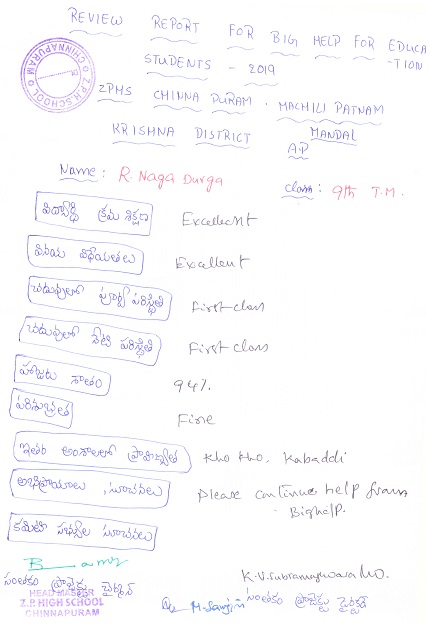 REVIEW REPORT FOR BIG HELP FOR EDUCA
-TION
STUDENTS - 2019
Z.P.H.SCHOOL CHINNAPURAM
ZPHS CHINNA PURAM. MACHILI PATNAM
KRISHNA DISTRICT MANDAL
AP
Name: R. Naga Durga
class: 9th T.M.
విద్యార్థి క్రమ శిక్షణ Excellent
వినయ విధేయతలు Excellent
చదువులో పూర్వ పరిస్థితి First class
చదువులో నేటి పరిస్థితి First class
హాజరు శాతం 94%
పరిశుభ్రత Fine
ఇతర అంశాలలో ప్రావీణ్యత Kho Kho. Kabaddi
అభిప్రాయాలు, సూచనలు Please continue help from
Bighelp.
కమిటీ సభ్యుల సూచనలు
సంతకం ప్రాజెక్టు చైర్మన్
HEAD MASTER
Z.P. HIGH SCHOOL
CHINNAPURAM
సంతకం ప్రాజెక్టు డైరెక్టర్